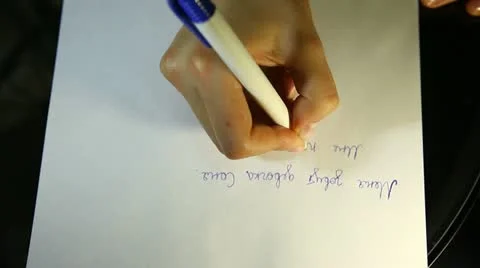 Меня зовут девочка Соня.
Мне